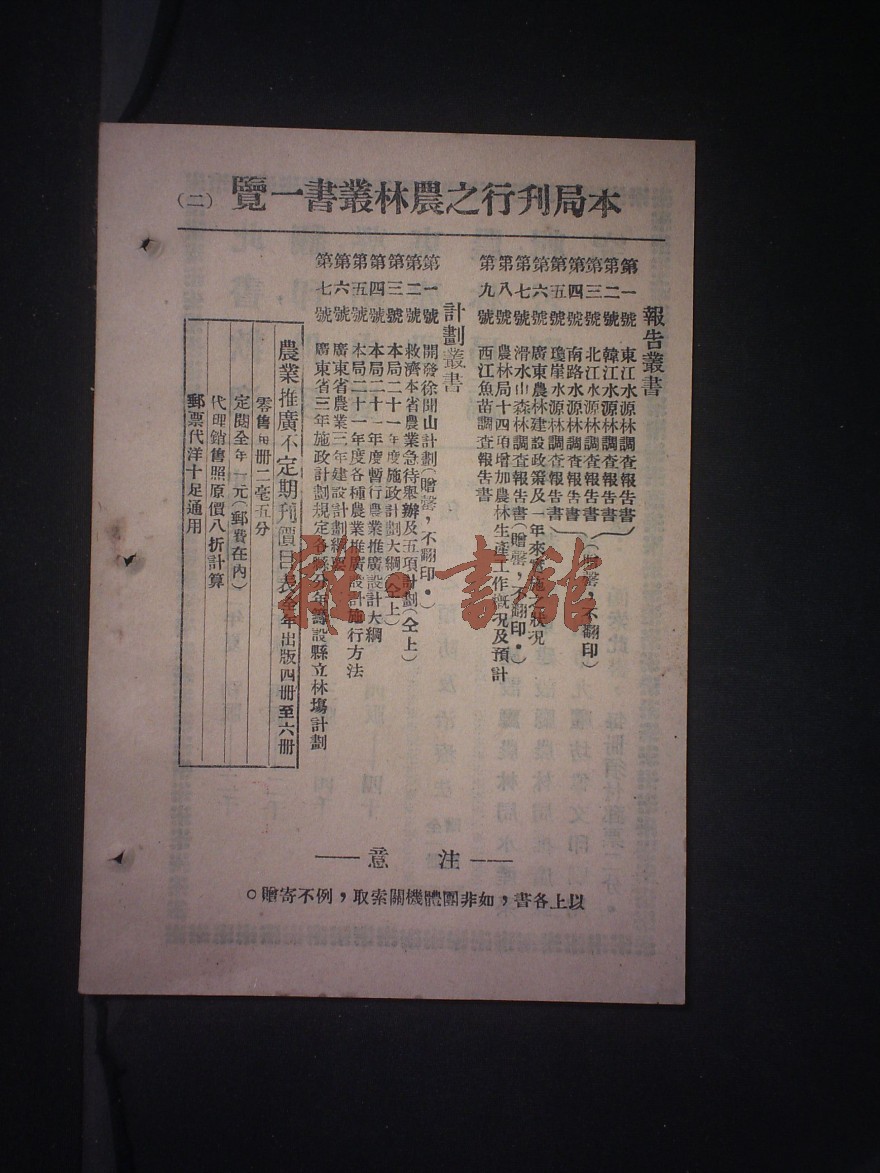 本局刋行之農林叢書一覽 (二)
報告叢書
第一號 東江水源林調查報告書
第二號 韓江水源林調查報告書
第三號 北江水源林調查報告書
第四號 南路水源林調查報告書
第五號 瓊崖水源林調查報告書
(贈罄，不翻印)
第六號 廣東農林建設政策及一年來實施之狀况
第七號 滑水山森林調查報告書(贈罄，不翻印．)
第八號 農林局十四項增加農林生產工作概况及預計
第九號 西江魚苗調查報告書
計劃叢書
第一號 開發徐聞山計劃(贈罄，不翻印．)
第二號 救濟本省農業急待舉辦及五項計劃(仝上)
第三號 本局二十一年度施政計劃大綱(仝上)
第四號 本局二十一年度暫行農業推廣設計大綱
第五號 本局二十一年度各種農業推廣設計施行方法
第六號 廣東省農業三年建設計劃綱要
第七號 廣東省三年施政計劃規定各縣分年籌設縣立林塲計劃
農業推廣不定期刊價目表全年出版四册至六册
零售每册二毫五分
定閱全年一元(郵費在內)
代理銷售照原價八折計算
郵票代洋十足通用
——注意——
以上各書，如非團體機關索取，例不寄贈。
雜·書館